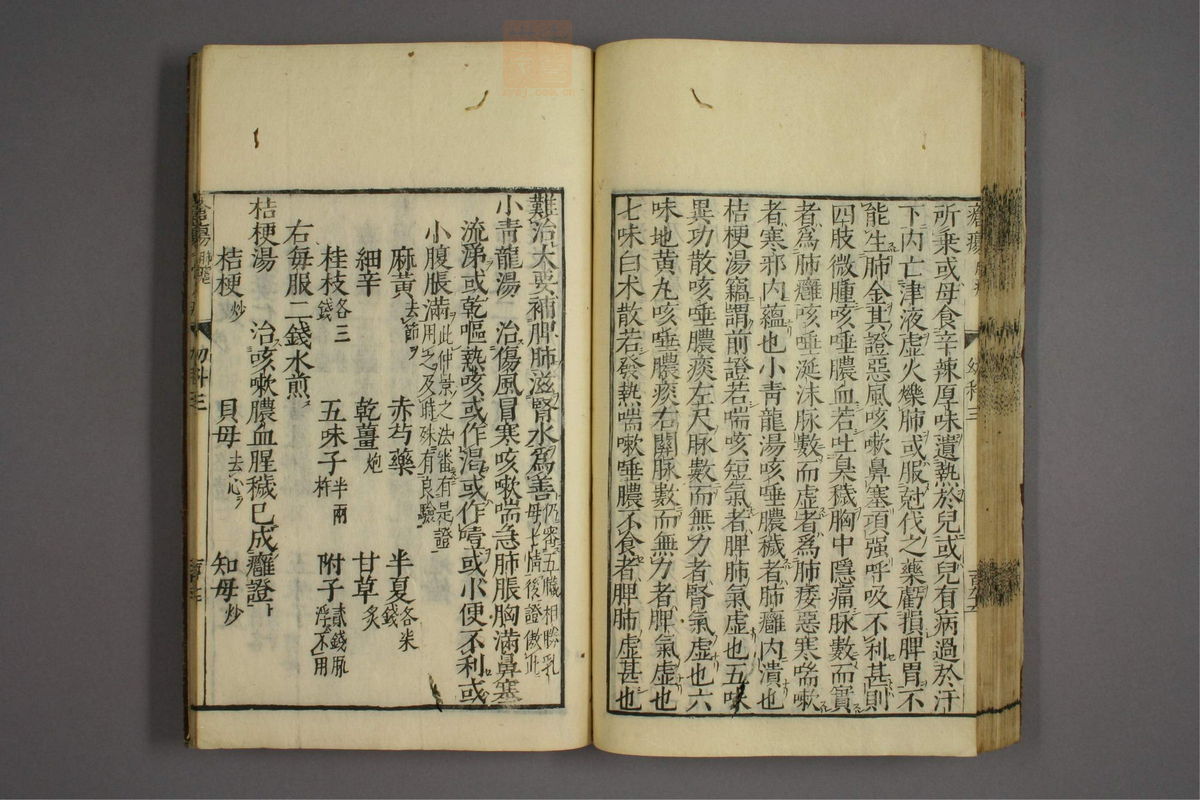 所乘或母食辛辣厚味遺熱於兒或兒有病過於汗
下內亡津液虛火爍肺或服尅伐之藥虧損脾胃不
能生肺金其證惡風咳嗽鼻塞項强呼吸不利甚則
四肢微腫咳唾膿血若吐臭穢胸中隱痛脉數而實
者爲肺癰咳唾涎沫脉數而虛者爲肺痿惡寒喘嗽
者寒邪內蘊也小青龍湯咳唾膿穢者肺癰內潰也
桔梗湯竊謂前證若喘咳短氣者脾肺氣虛也五味
異功散咳唾膿痰左尺脉數而無力者腎氣虛也六
味地黄丸咳唾膿痰右關脉數而無力者脾氣虛也
七味白术散若發熱喘嗽唾膿不食者脾肺虛甚也
難治大要補脾肺滋腎水爲善仍審五臟相勝乳母七情後證倣此
小青龍湯 治傷風冒寒咳嗽喘急肺脹胸滿鼻塞
流涕或乾嘔熱咳或作渴或作噎或小便不利或
小腹脹滿此仲景之法審有是證用之及時殊有良驗
麻黃去節 赤芍藥 半夏各柒錢
細辛 乾薑炮 甘草炙
桂枝各三錢 五味子半兩杵 附子貳錢脉浮不用
右每服二錢水煎
桔梗湯 治咳嗽膿血腥穢已成癰證
桔梗炒 貝母去心 知母炒
幼科三